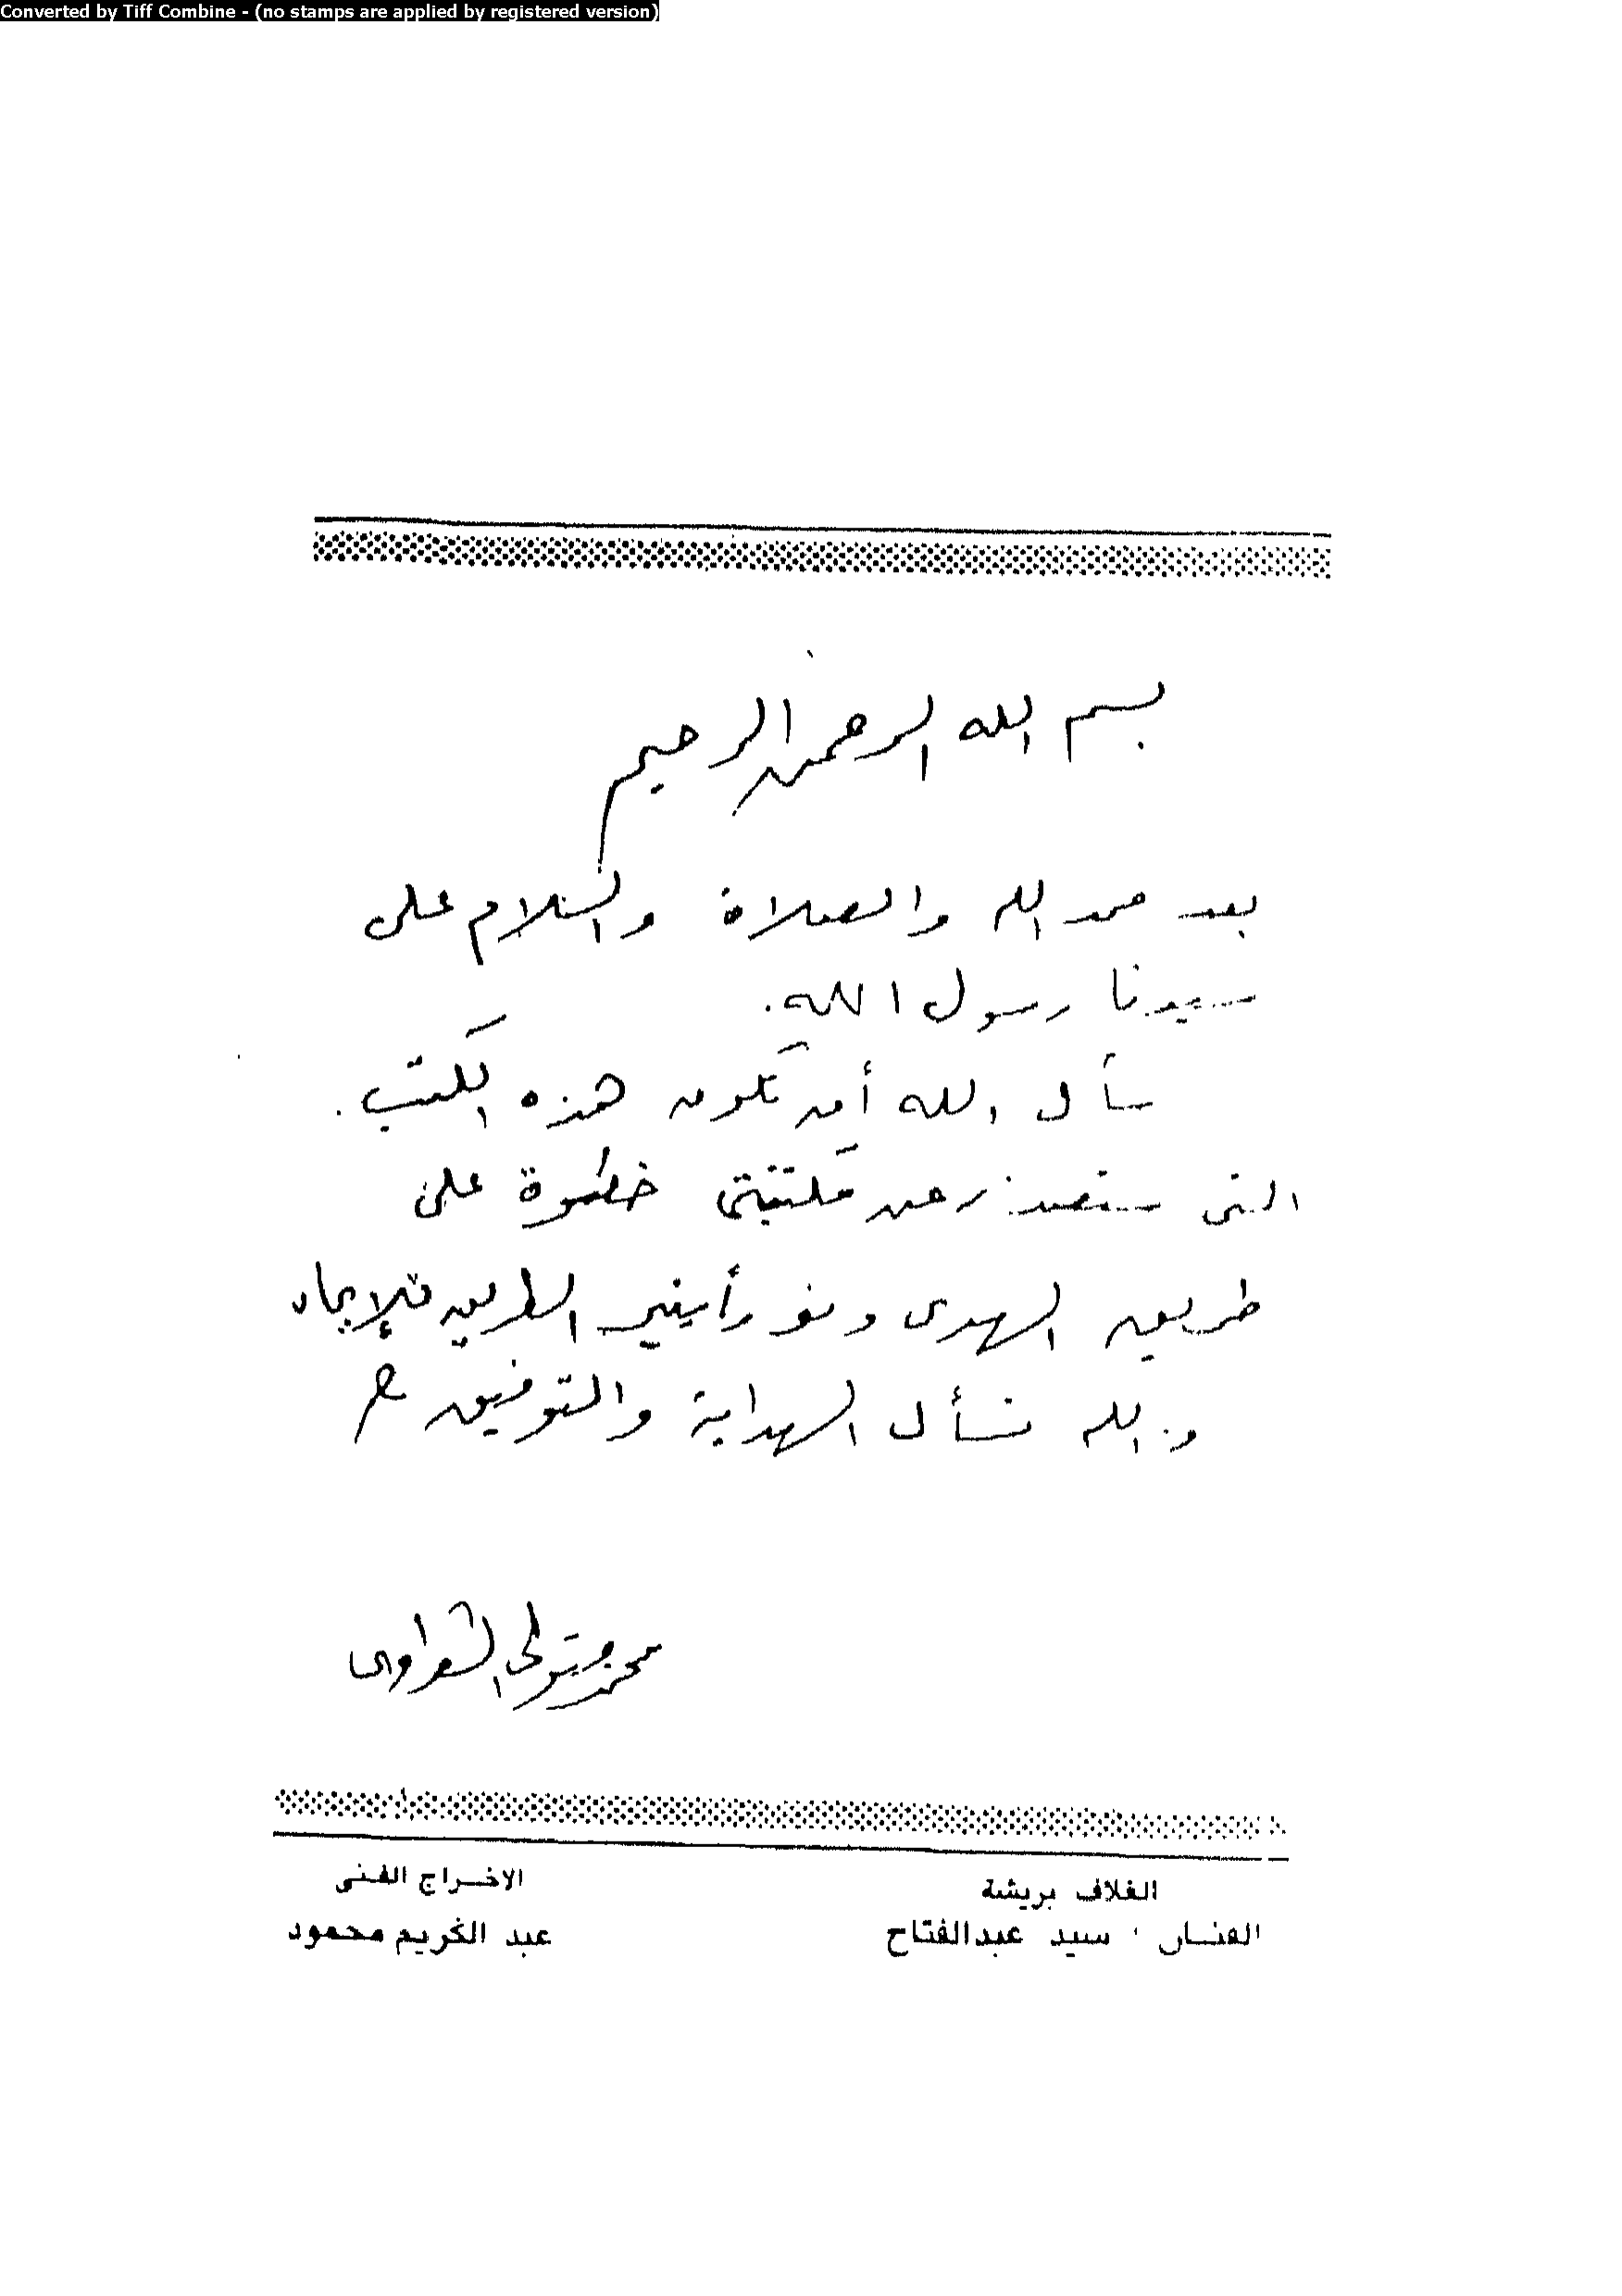 Converted by Tiff Combine - (no stamps are applied by registered version)
بسم الله الرحمن الرحيم
بعد حمد الله والصلاة والسلام على
سيدنا رسول الله.
نسأل الله أن تكون هذه الكتب.
التى ستصدر عن مكتبتى خطوة على
طريق الهدى ونورا ينير الطريق للإيمان
والله نسأل الهداية والتوفيق
محمد متولى الشعراوى
الغلاف بريشة
الفنان سيد عبدالفتاح
الاخراج الفنى
عبد الكريم محمود